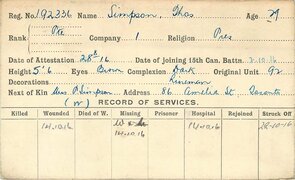 Reg. No. 192336 Name Simpson, Thos Age 29
Rank Pte Company 1 Religion Pres
Date of Attestation 16 Date of Joining 15th Can. Battn. 10.16
Height 5'6 Eyes Brown Complexion Dark Original Unit 92
Decorations Lineman
Next of Kin Mrs. P. Simpson Address 86 Amelia St. Toronto
(W) RECORD OF SERVICES.
Killed Wounded Died of W. Missing Prisoner Hospital Rejoined Struck Off
14.10.16 14.10.16 28-10-16